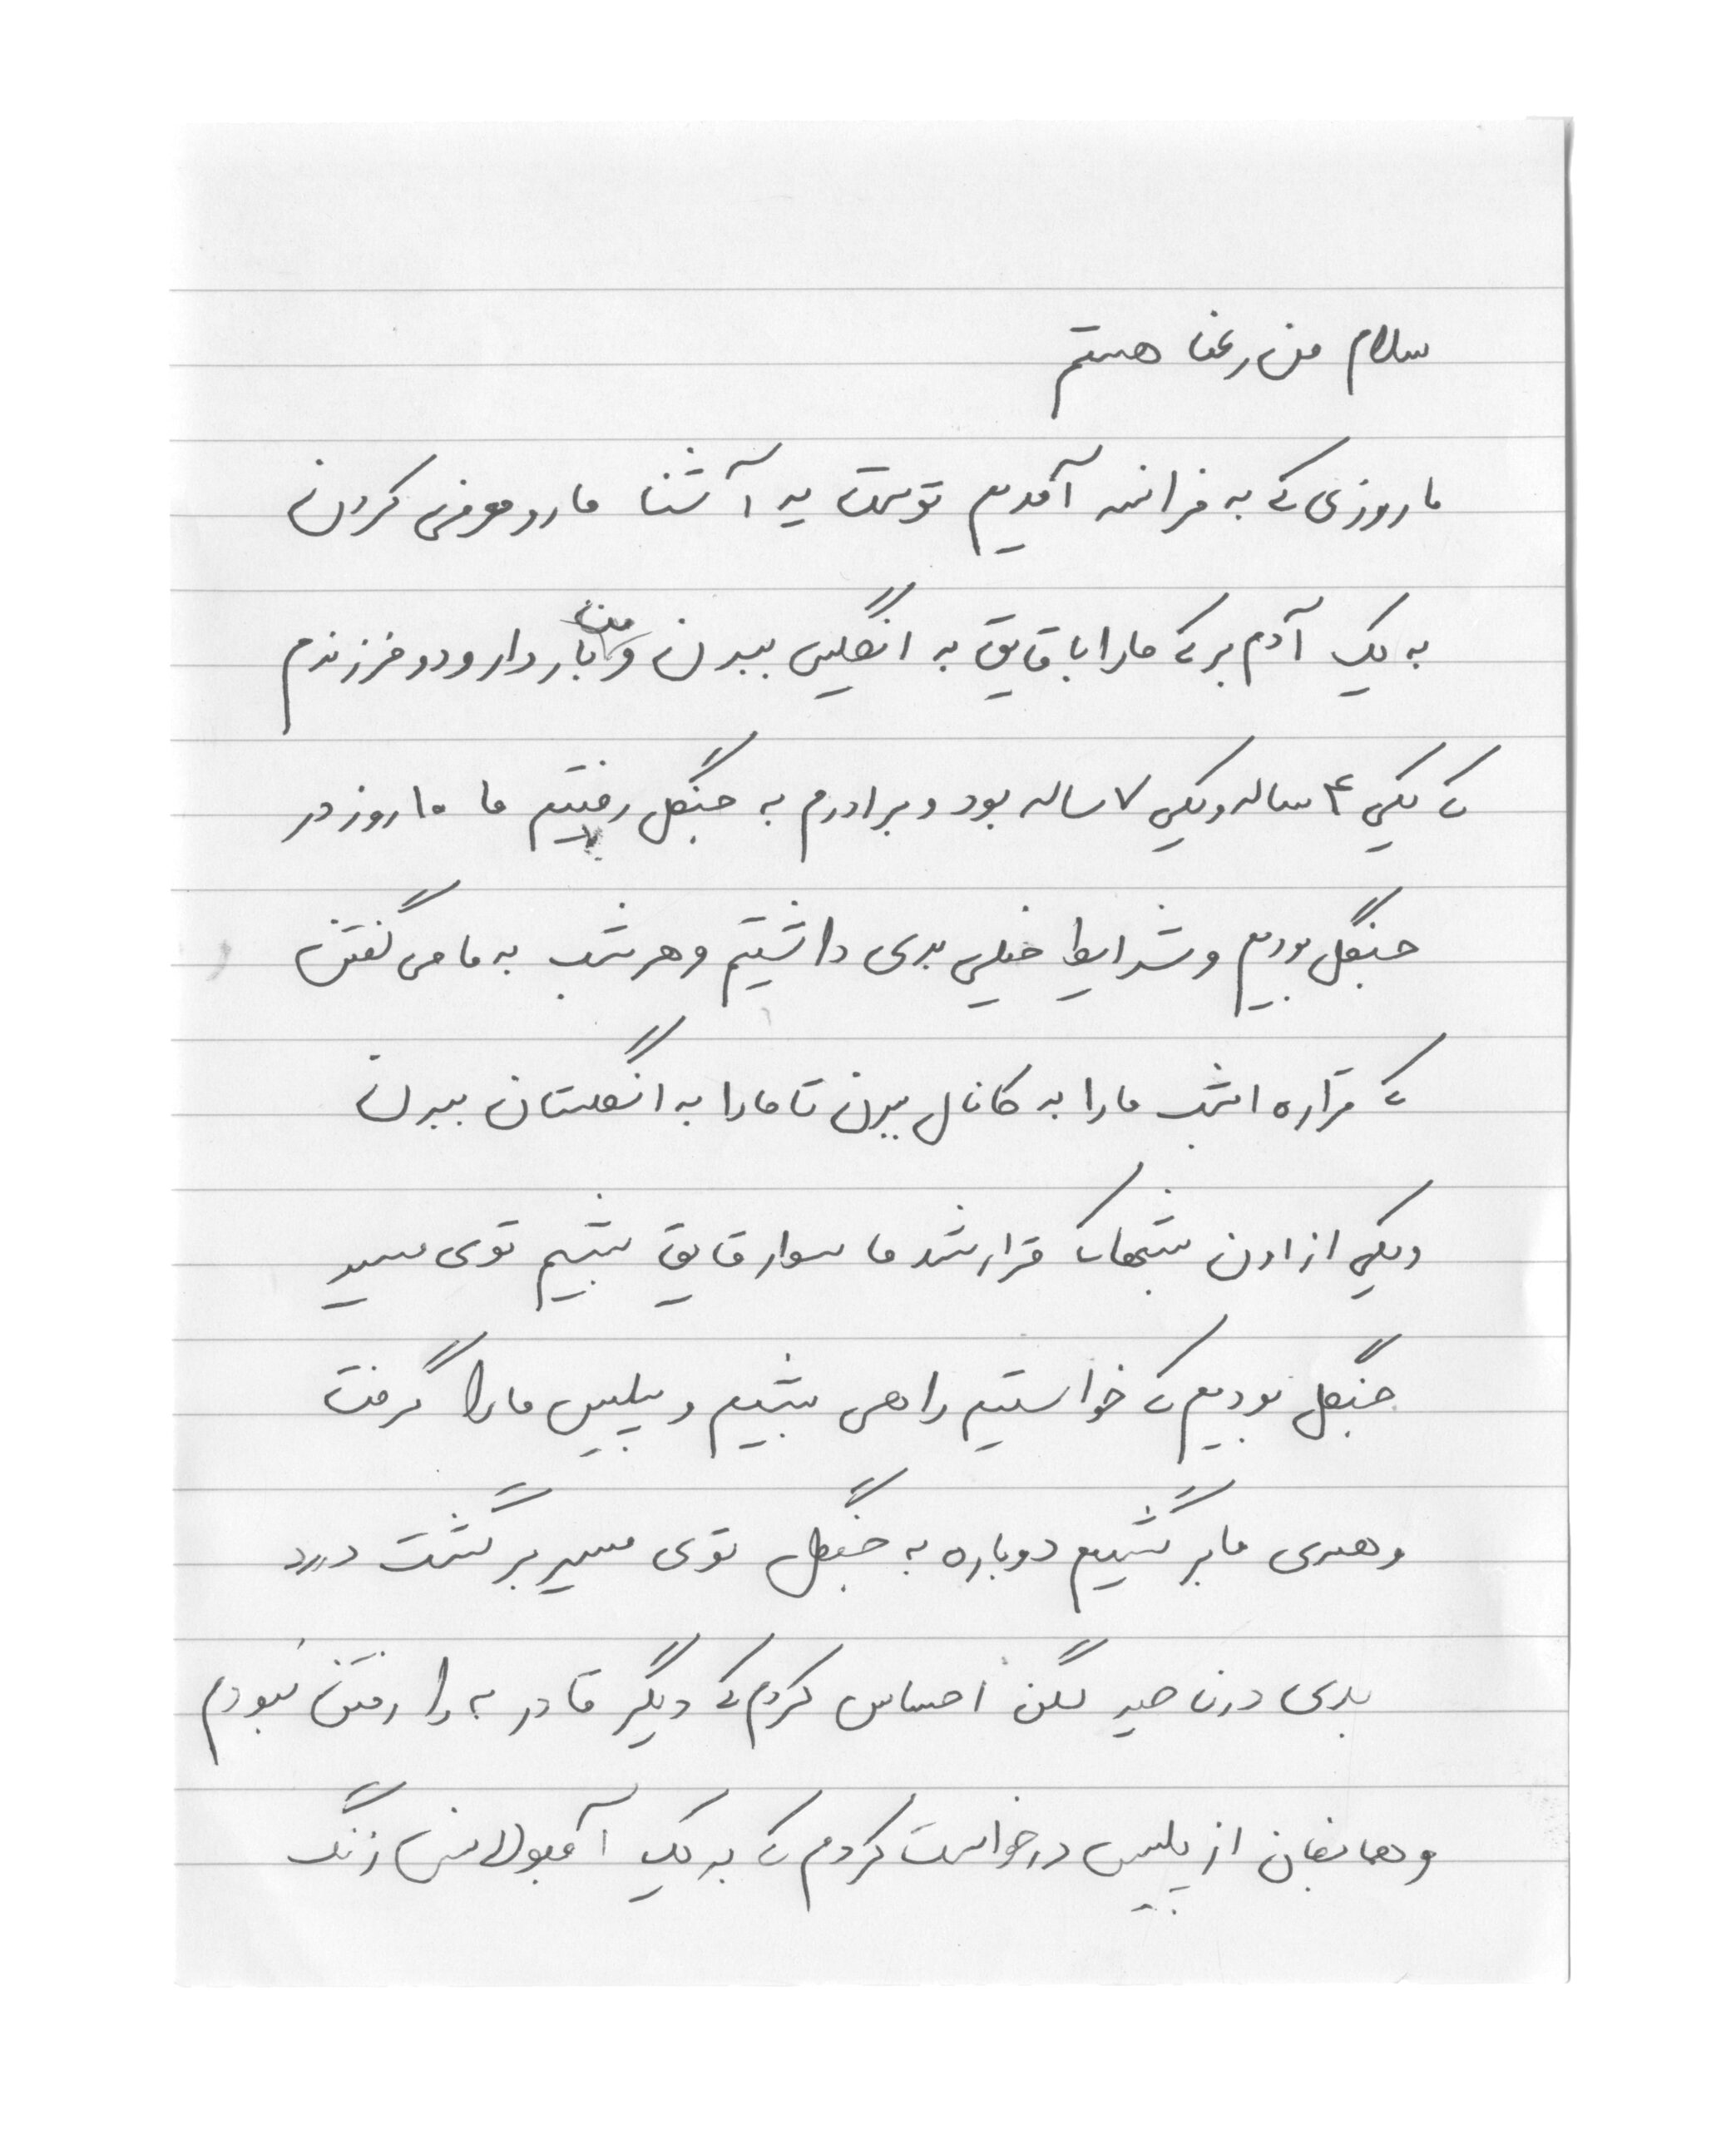 سلام من رعنا هستم
ما روزی که به فرانسه آمدیم توست یه آشنا ما رو معرفی کردن
به یک آدم بر که ما را با قایق به انگلیس ببرن و من باردار و دو فرزندم
که یکی ۴ ساله و یکی ۷ ساله بود و برادرم به جنگل رفتیم ما ۱۰ روز در
جنگل بودیم و شرایط خیلی بدی داشتیم و هر شب به ما می گفتن
که قراره امشب ما را به کانال ببرن تا ما را به انگلستان ببرن
و یکی از اون شبهای که قرار شد ما سوار قایق بشیم توی مسیر
جنگل بودیم که خواستیم راهی بشیم و پلیس ما را گرفت
و همگی ما برگشتیم دوباره به جنگل توی مسیر برگشت درد
بدی در ناحیه لگن احساس کردم که دیگر قادر به را رفتن نبودم
و همانجان از پلیس درخواست کردم که به یک آمبولانس زنگ